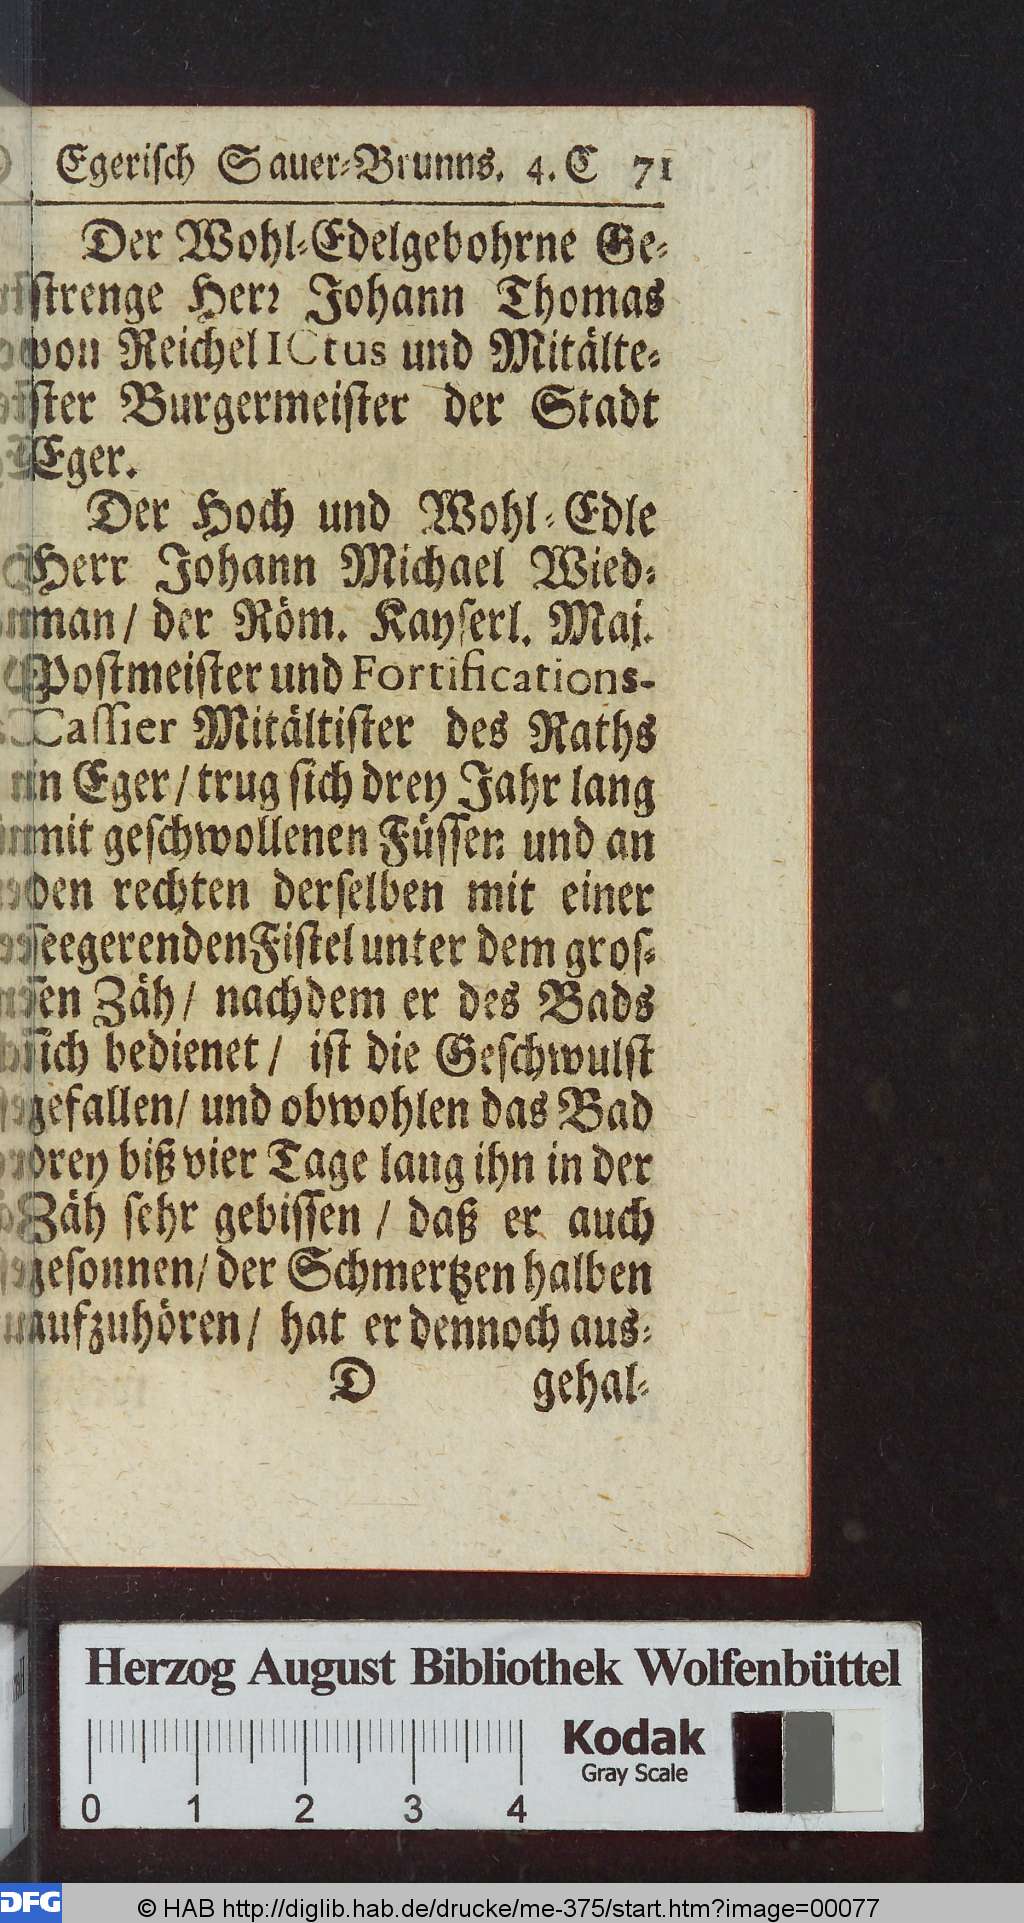 Egerisch Sauer-Brunns. 4. C 71
Der Wohl-Edelgebohrne Ge-
strenge Herr Johann Thomas
von Reichel ICtus und Mitälte-
ster Burgermeister der Stadt
Eger.
Der Hoch und Wohl-Edle
Herr Johann Michael Wied-
man / der Röm. Kayserl. Maj.
Postmeister und Fortifications-
Cassier Mitältister des Raths
in Eger / trug sich drey Jahr lang
mit geschwollenen Füssen und an
den rechten derselben mit einer
seegerenden Fistel unter dem gros-
sen Zäh / nachdem er des Bads
sich bedienet / ist die Geschwulst
gefallen / und obwohlen das Bad
drey biß vier Tage lang ihn in der
Zäh sehr gebissen / daß er auch
gesonnen / der Schmertzen halben
aufzuhören / hat er dennoch aus-
D gehal-
Herzog August Bibliothek Wolfenbüttel
Kodak
Gray Scale
0 1 2 3 4
DFG © HAB http://diglib.hab.de/drucke/me-375/start.htm?image=00077